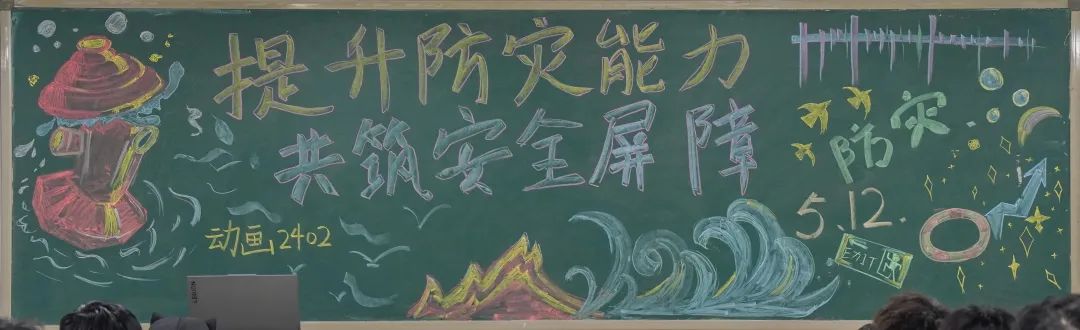 提升防灾能力
共筑安全屏障
动画2402
防灾
5.12.
EXIT